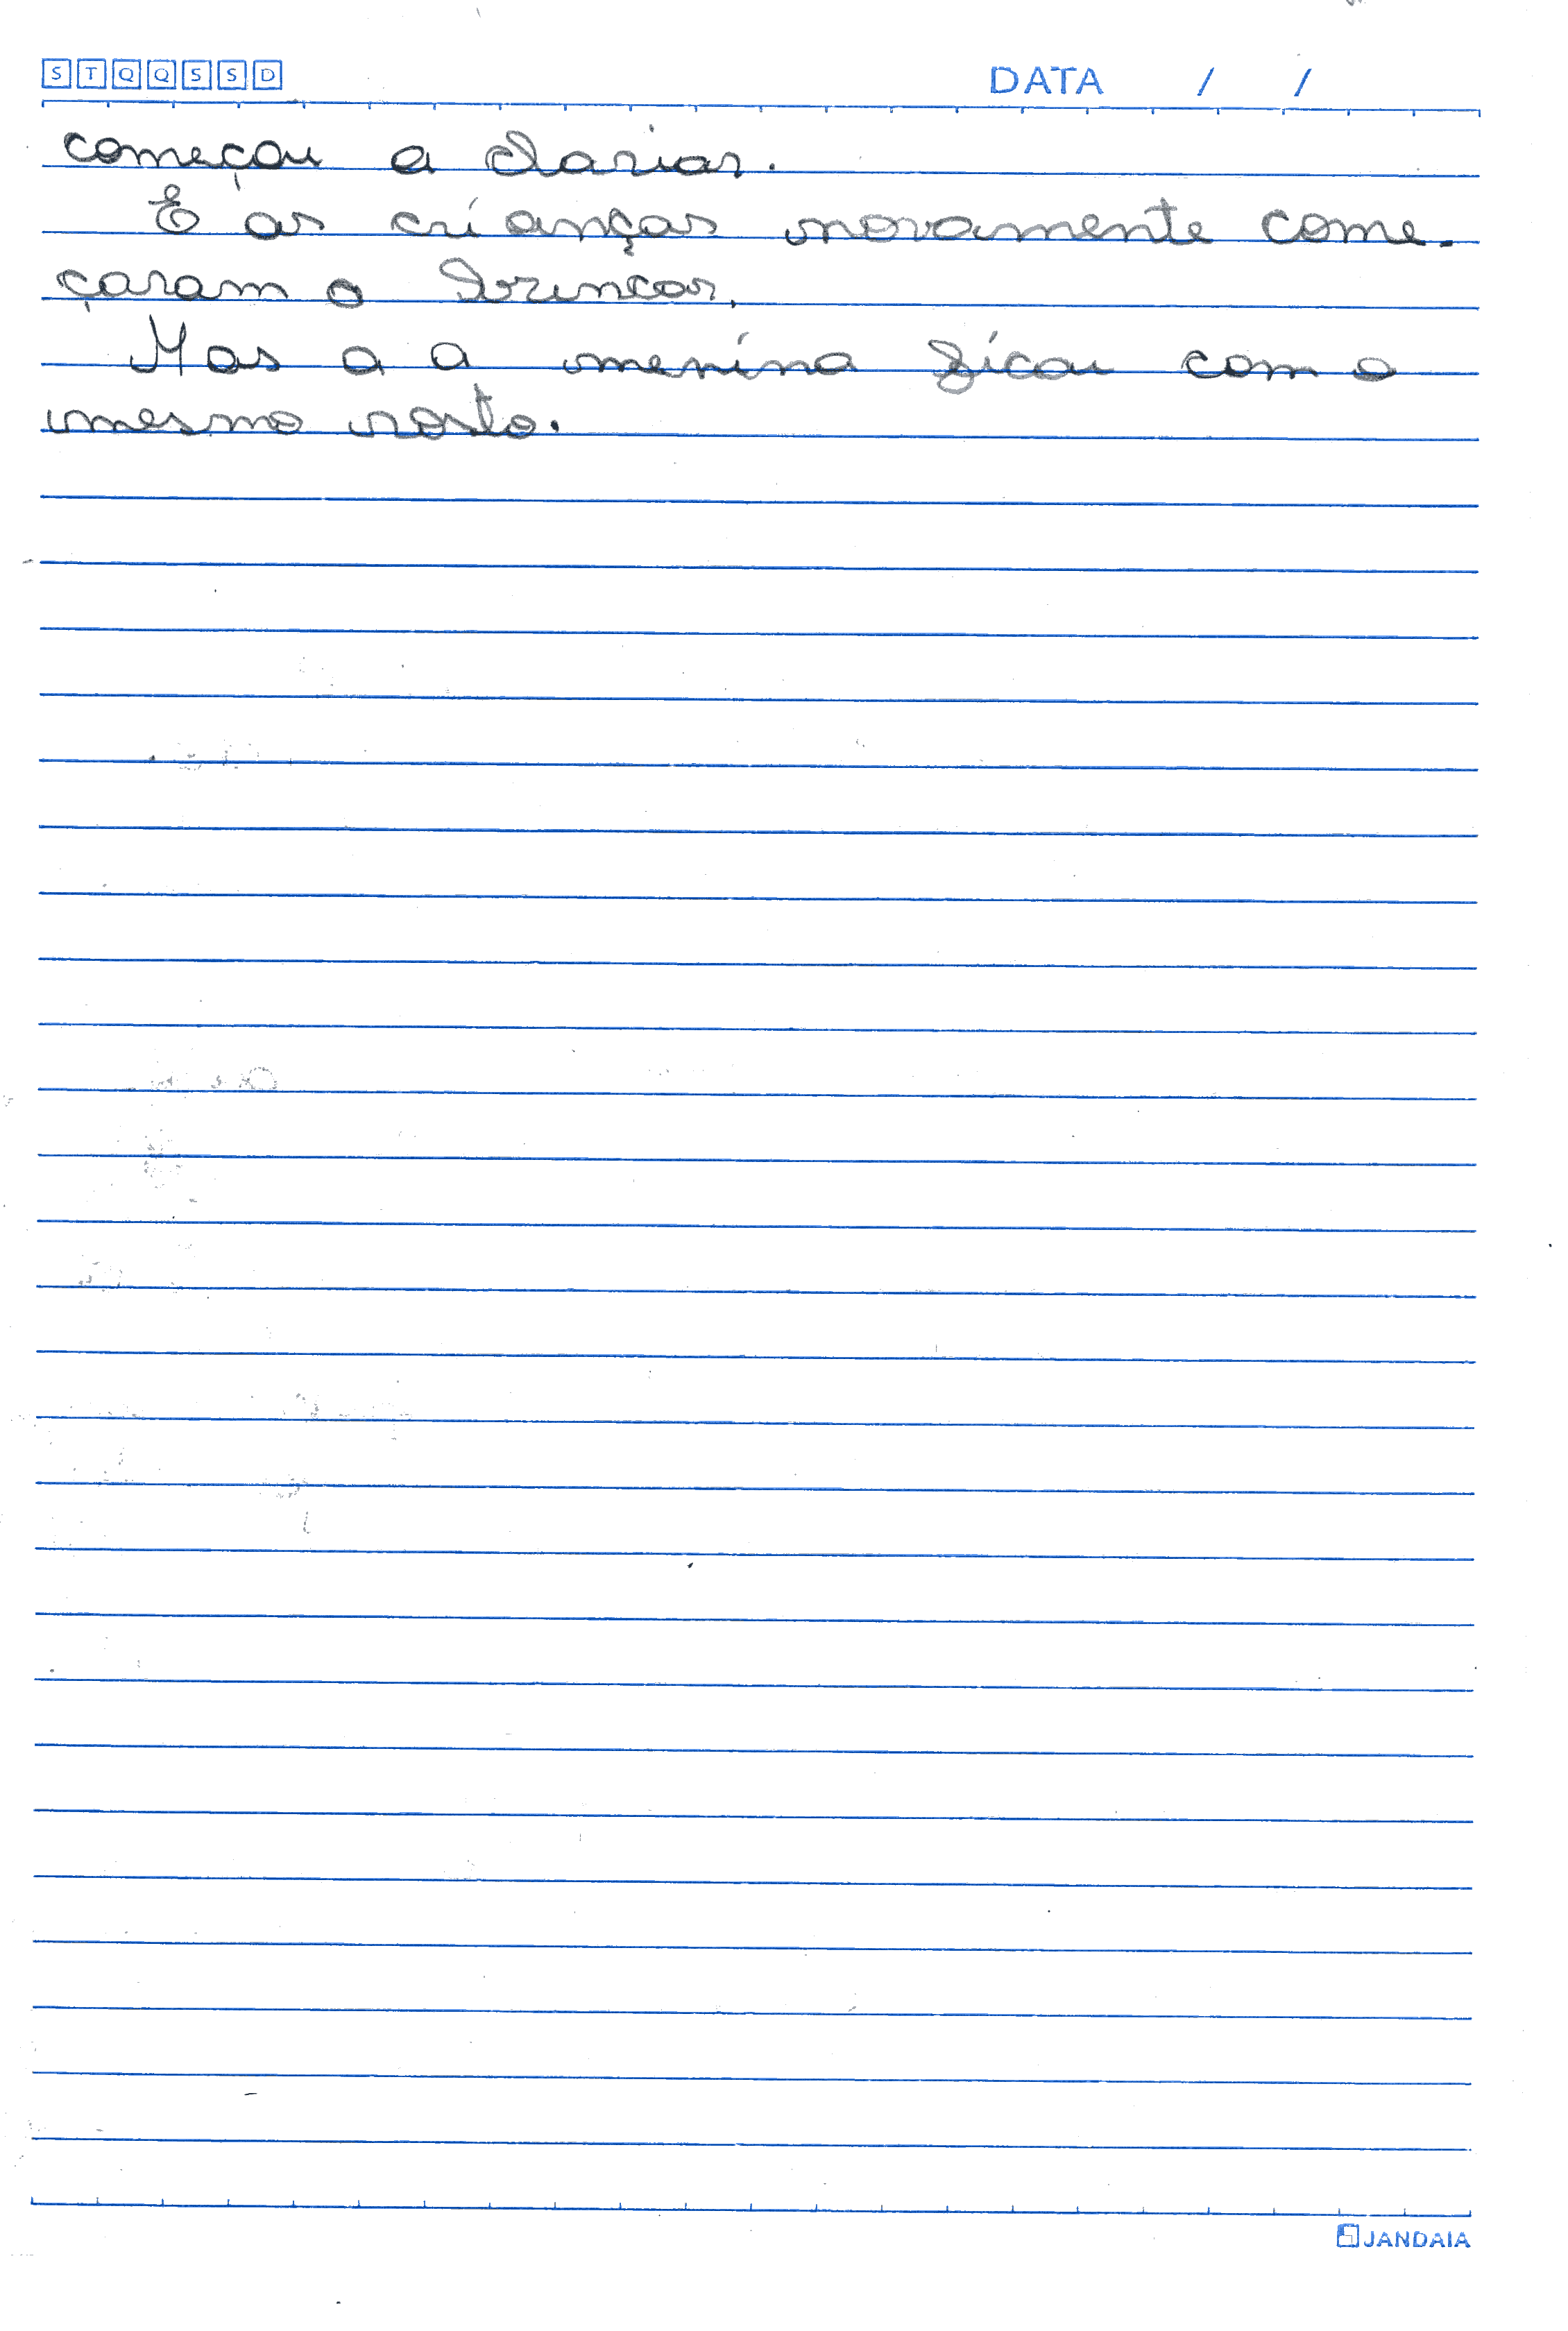 S T Q Q S S D DATA / /
começou a clariar.
E as crianças novamente come-
çaram a brincar.
Mas a a menina ficou com o
mesmo rosto.
JANDAIA